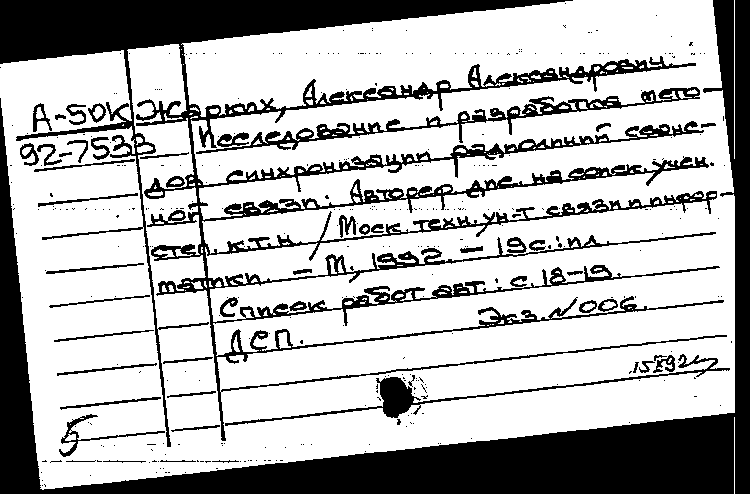 А-50К Жарких, Александр Александрович.
92-7533 Исследование и разработка мето-
дов синхронизации радиолиний сеанс-
ной связи: Автореф. дис. на соиск. учен.
степ. к.т.н. / Моск. техн. ун-т связи и инфор-
матики. - М., 1992. - 19 с.: ил.
Список работ авт.: с. 18-19.
ДСП. Экз. № 006.
5